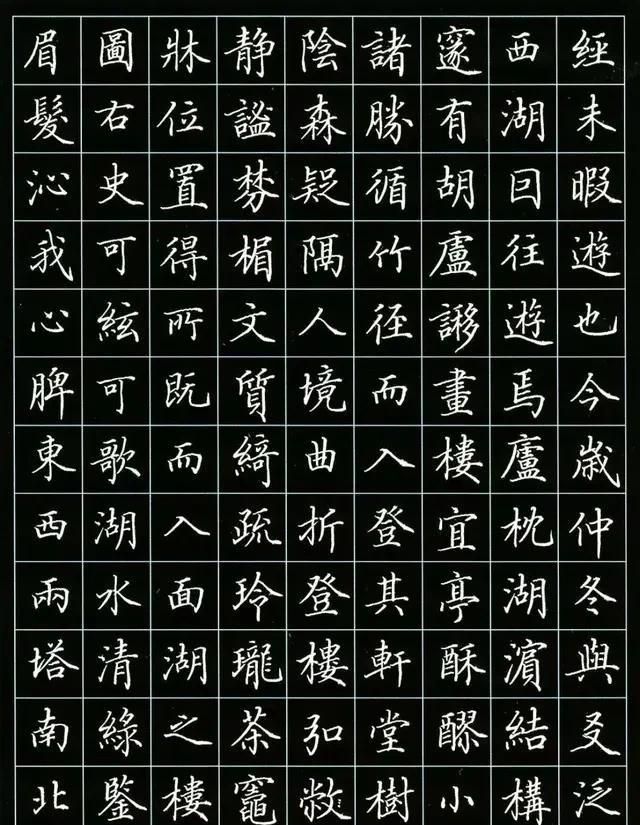 經未暇遊也今歲仲冬與友泛
西湖回往遊焉廬枕湖濱結構
邃有胡盧謻畫樓宜亭酥醪小
諸勝循竹徑而入登其軒堂樹
陰森疑隔人境曲折登樓弘敞
静謐棼楣文質綺疏玲瓏茶竈
牀位置得所既而入面湖之樓
圖右史可絃可歌湖水清綠鑒
眉髮沁我心脾東西兩塔南北